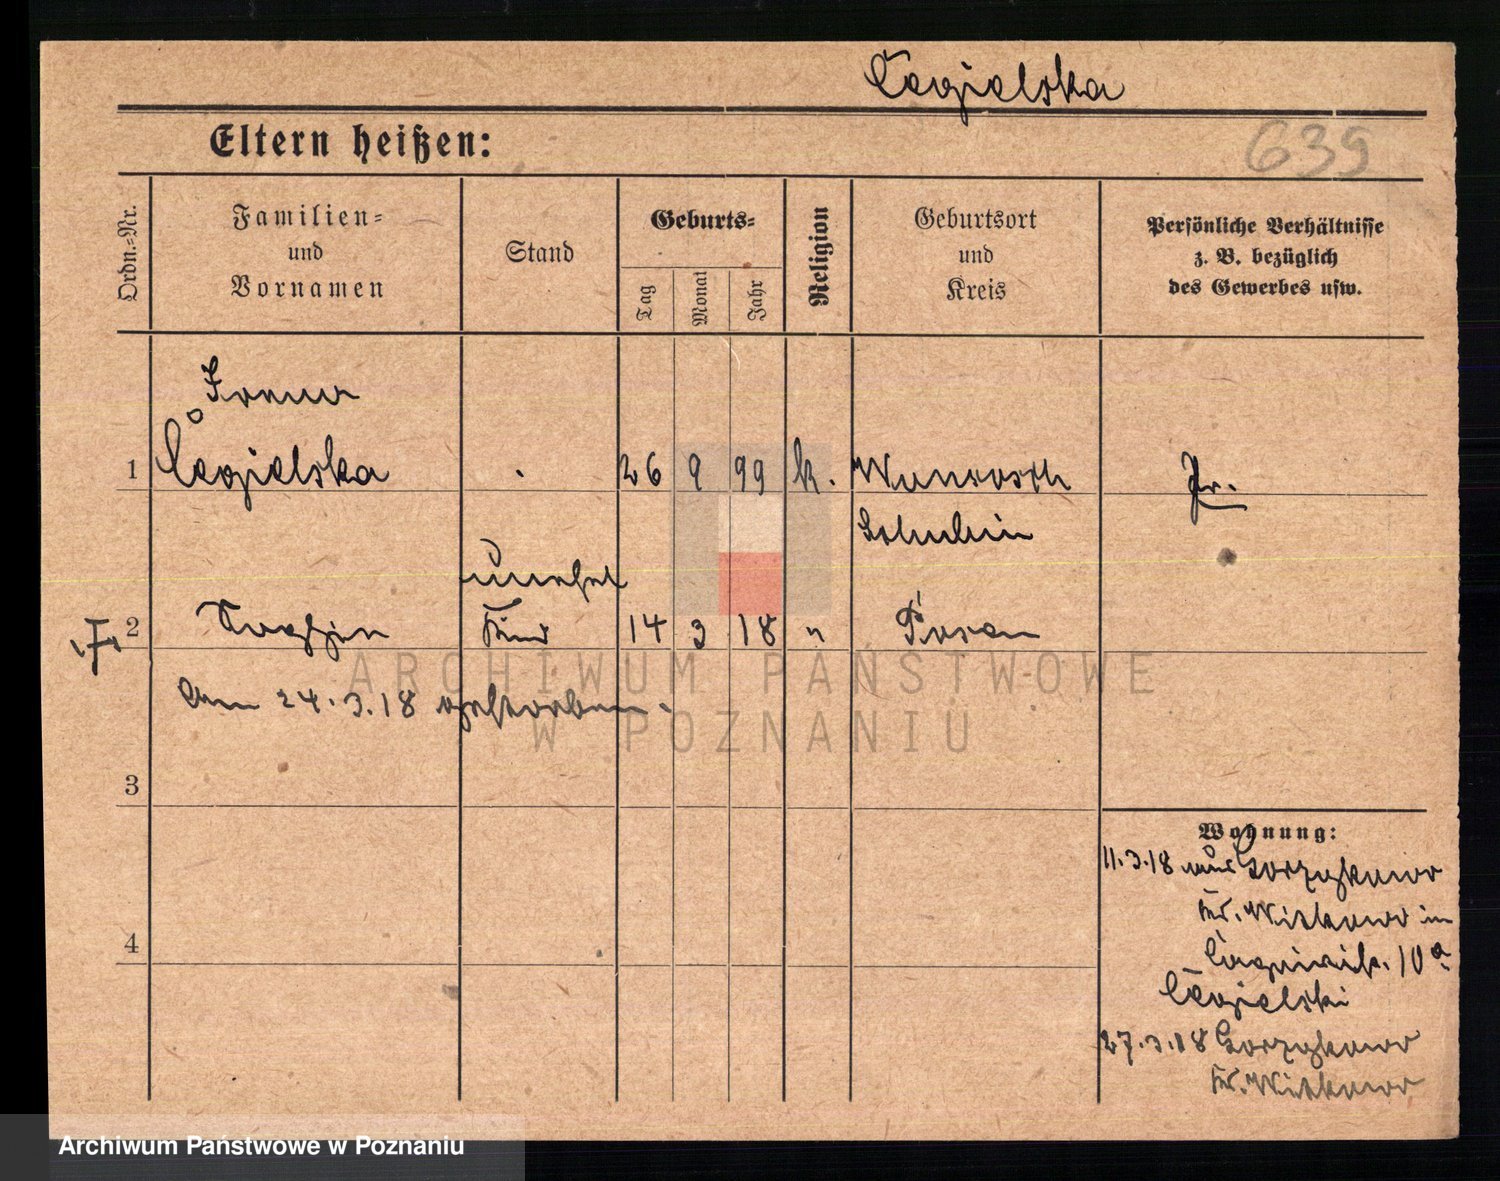 Cegielska
Eltern heißen:
639
Ordn.-Nr.
Familien-
und
Vornamen
Stand
Geburts-
Tag
Monat
Jahr
Religion
Geburtsort
und
Kreis
Persönliche Verhältnisse
z. B. bezüglich
des Gewerbes usw.
1
Cegielska
26 9 99 k.
Pr.
Schubin
unehel
2
Kind
14 3 18 "
Posen
Am 24.3.18 gestorben.
3
4
Wohnung:
11.3.18 aus Gorzykowo
Kr. Witkowo in
10a
Cegielski
27.3.18 Gorzykowo
Kr. Witkowo
ARCHIWUM PAŃSTWOWE
W POZNANIU
Archiwum Państwowe w Poznaniu